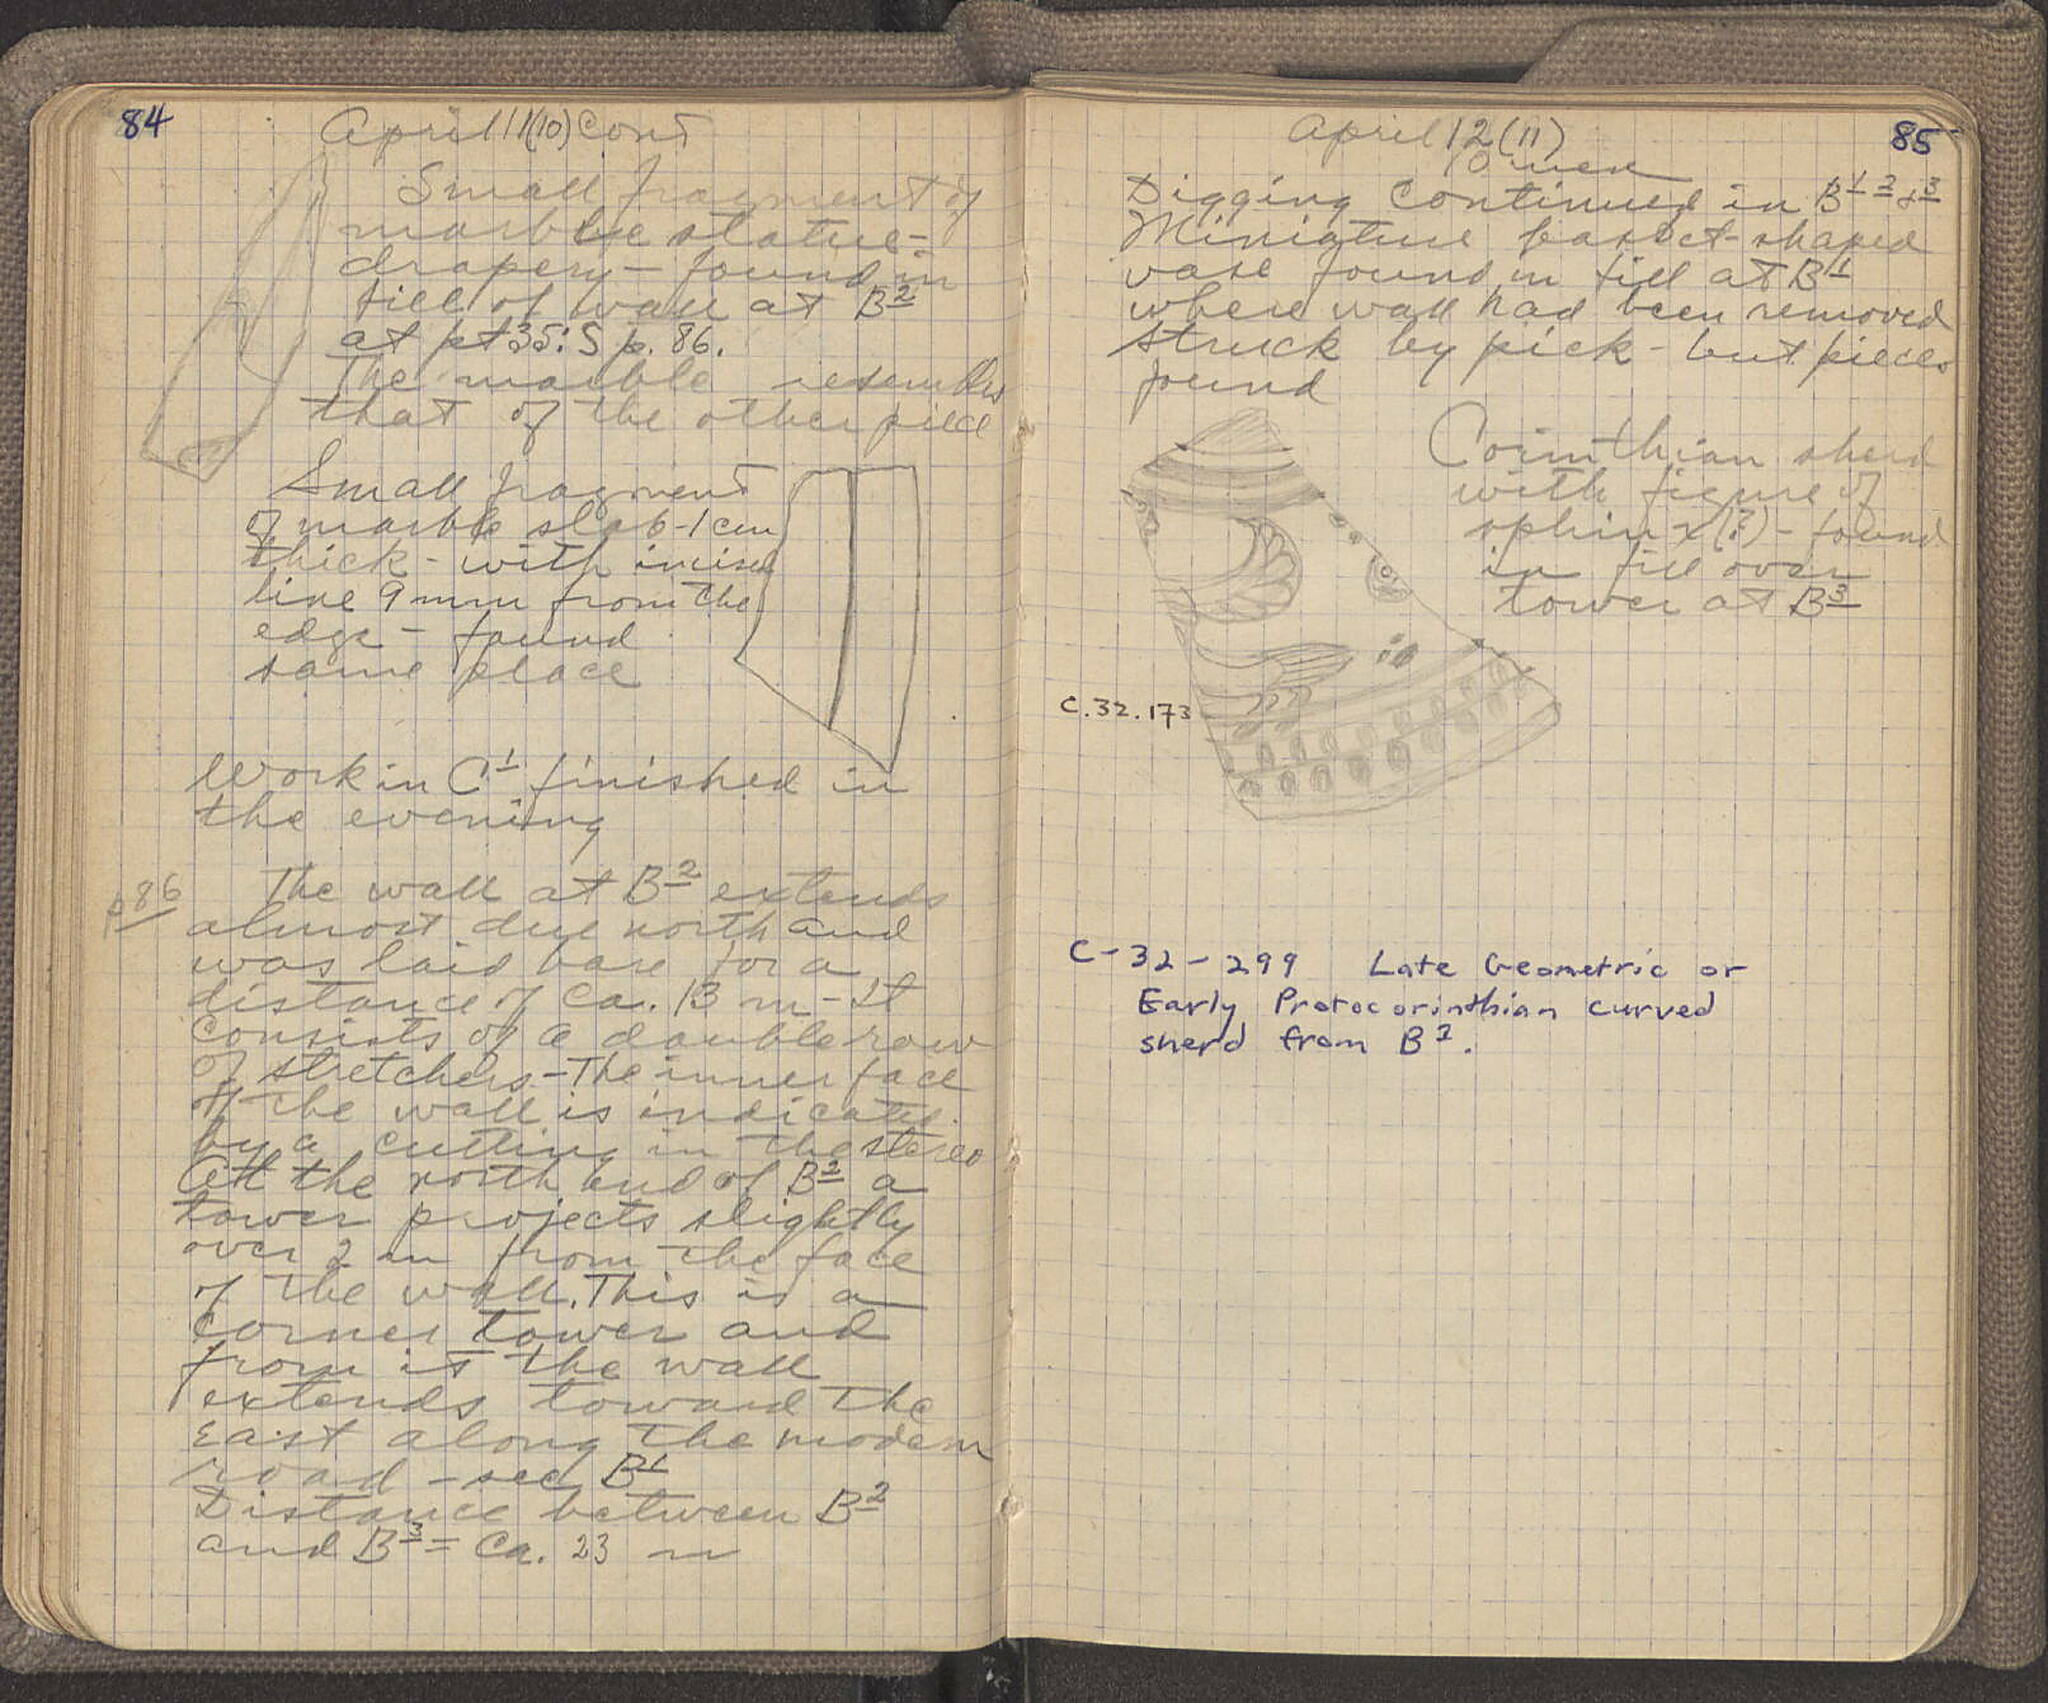 84
April 11(10) Cont
Small fragment of
marble statue-
drapery - found in
fill of wall at B²
at pt 35:S p. 86.
The marble resembles
that of the other piece
Small fragment
of marble slab - 1 cm
thick - with incised
line 9 mm from the
edge - found
same place
Work in C¹ finished in
the evening
p 86
The wall at B² extends
almost due north and
was laid bare for a
distance of ca. 13 m - It
consists of a double row
of stretchers - The inner face
of the wall is indicated
by a cutting in the stereo
At the north end of B² a
tower projects slightly
over 2 m from the face
of the wall. This is a
corner tower and
from it the wall
extends toward the
East along the modern
road - see B¹
Distance between B²
and B³ = Ca. 23 m
85
April 12 (11)
10 men
Digging continued in B¹ ² & ³
Miniature basket-shaped
vase found in fill at B¹
where wall had been removed
struck by pick - but pieces
found
Corinthian sherd
with figure of
sphinx (?) - found
in fill over
tower at B³
C.32.173
C-32-299 Late Geometric or
Early Protocorinthian curved
sherd from B³.